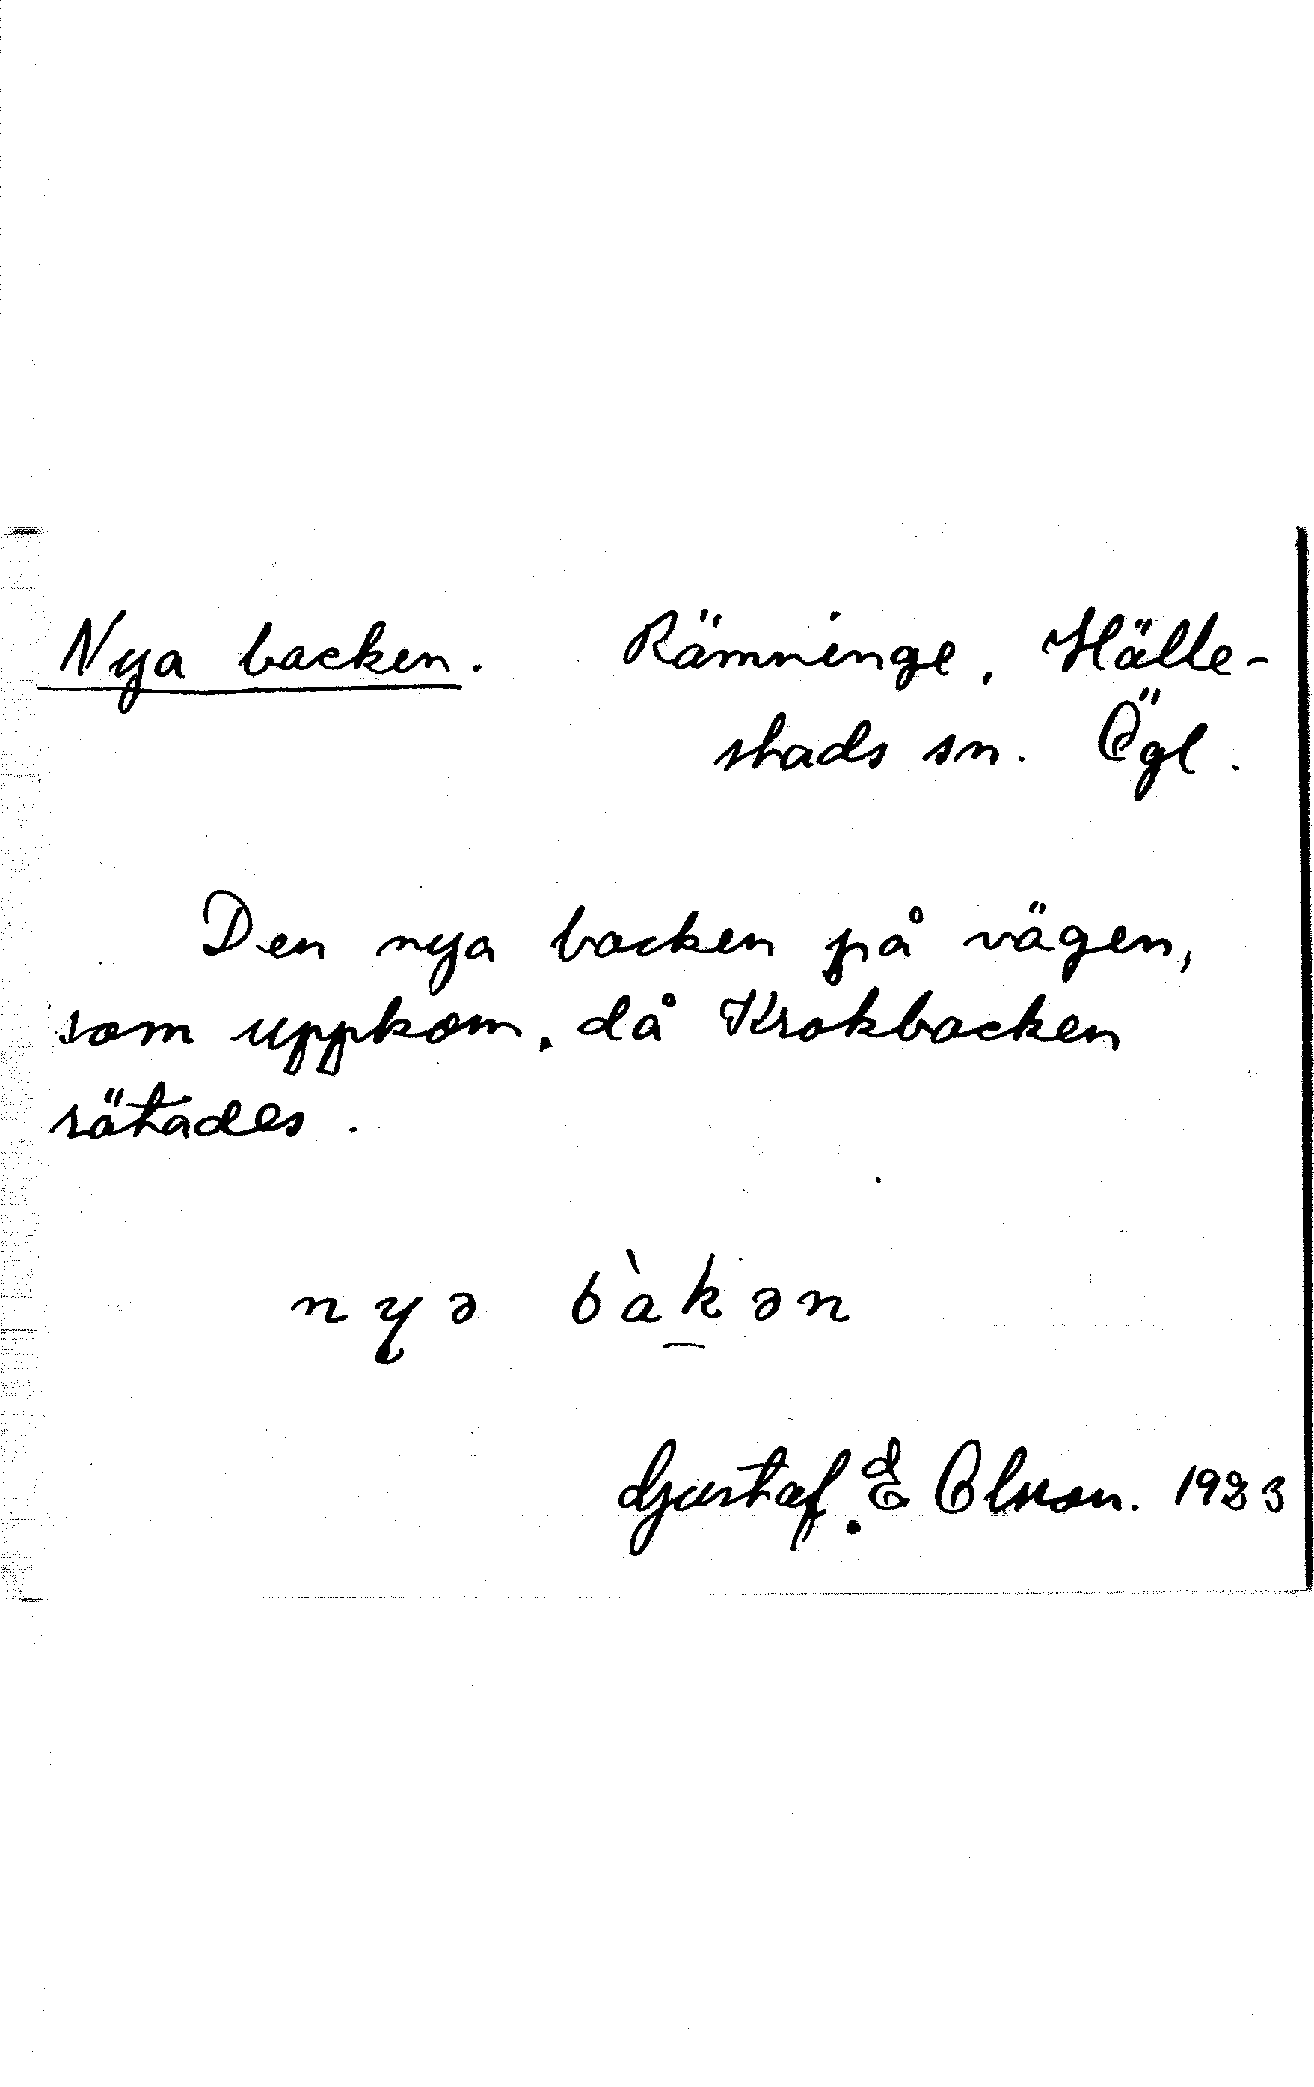 Nya backen. Rämninge, Hälle-
stads sn. Ögl.
Den nya backen på vägen,
som uppkom, då Krokbacken
rätades.
nyə b̀akən
Gustaf E Olsson. 1923